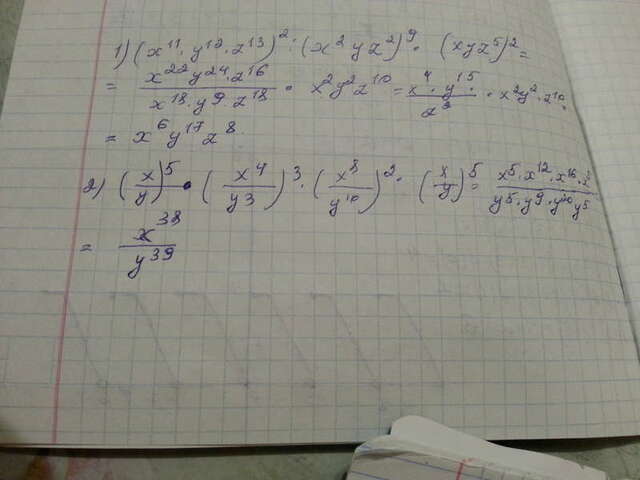 1) (x¹¹·y¹²·z¹³)²:(x²yz²)⁹·(xyz⁵)²=
= x²²y²⁴·z¹⁶/x¹⁸·y⁹·z¹⁸ · x²y²z¹⁰ = x⁴·y¹⁵·/z² · x²y²·z¹⁰.
= x⁶y¹⁷z⁸.
2) (x/y)⁵·(x⁴/y³)³·(x⁸/y¹⁰)²·(x/y)⁵= x⁵·x¹²·x¹⁶·x⁵/y⁵·y⁹·y²⁰y⁵
= x³⁸/y³⁹